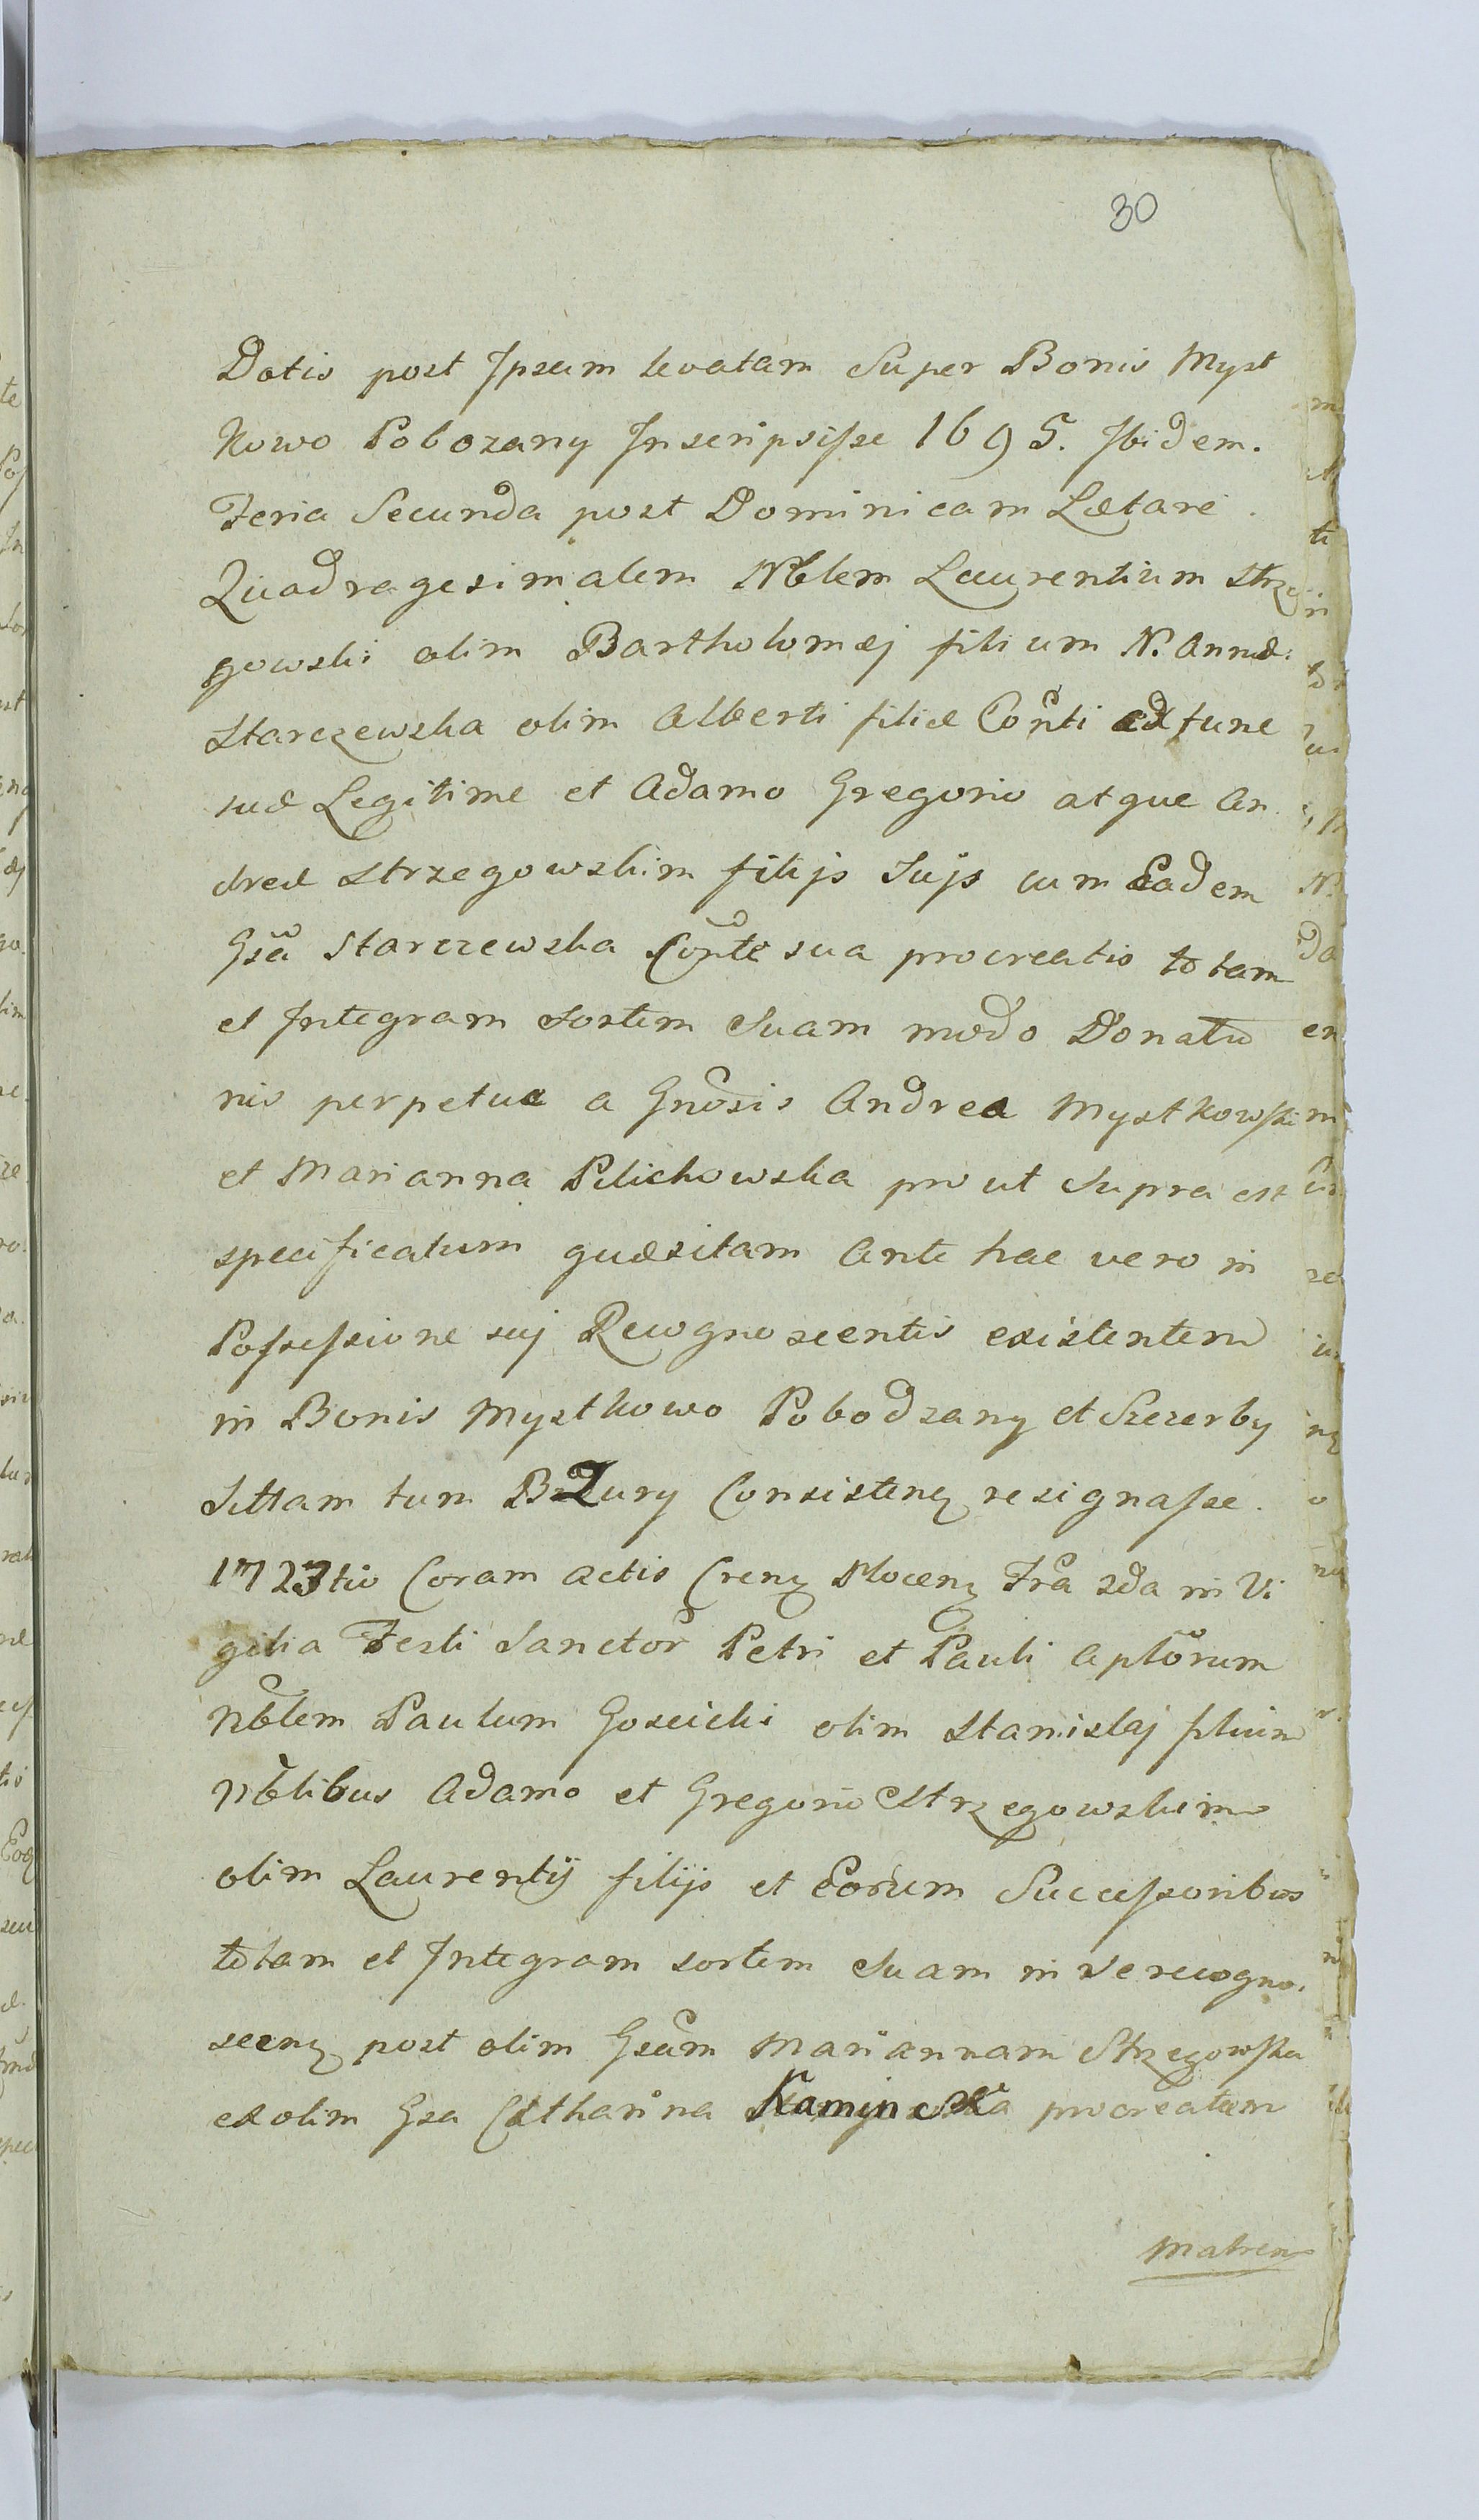 30
Dotis post Ipsam levatam Super Bonis Myst
kowo Pobozany Inscripsisse 1695. Ibidem.
Feria Secunda post Dominicam Lætare
Quadragesimalem Nblem Laurentium Strze
gowski olim Bartholomæj filium N. Annæ
Starczewska olim Alberti filiæ Conti ad tunc
suæ Legitimæ et Adamo Gregorio atque An
dreæ Strzegowskim filijs Suijs cum Eadem
Gsa Starczewska Conte sua procreatis totam
et Integram Sortem Suam modo Donatio
nis perpetuæ a Gnosis Andrea Mystkowski
et Marianna Pilichowska prout Supra est
specificatum quæsitam Ante hac vero in
Possessione suj Recognoscentis existentem
in Bonis Mystkowo Pobodzany et Szczerby
Sittam tum BzZury Consisten resignasse.
1723tio Coram Actis Cren Plocen Fra 2da in Vi
gilia Festi Sanctor Petri et Pauli Aplorum
Nblem Paulum Goscicki olim Stanislaj flium
Nblibus Adamo et Gregorio Strzegowskim
olim Laurentij filijs et Eorum Successoribus
totam et Integram sortem Suam in se recogno.
scen post olim Gsam Mariannam Strzegowska
ex olim Gsa Catharina Kaminska procreatam
Matrem